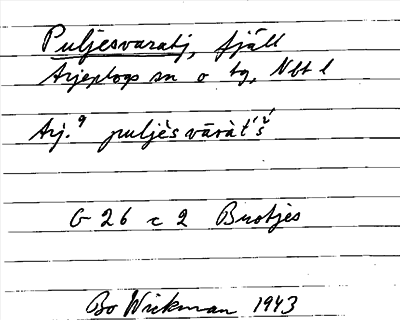 Puljesvaratj, fjäll
Arjeplogs sn o tg, Nbt l
Arj.⁹ puljèsvāràt́š́
G 26 c 2 Buotjes
Bo Wickman 1943